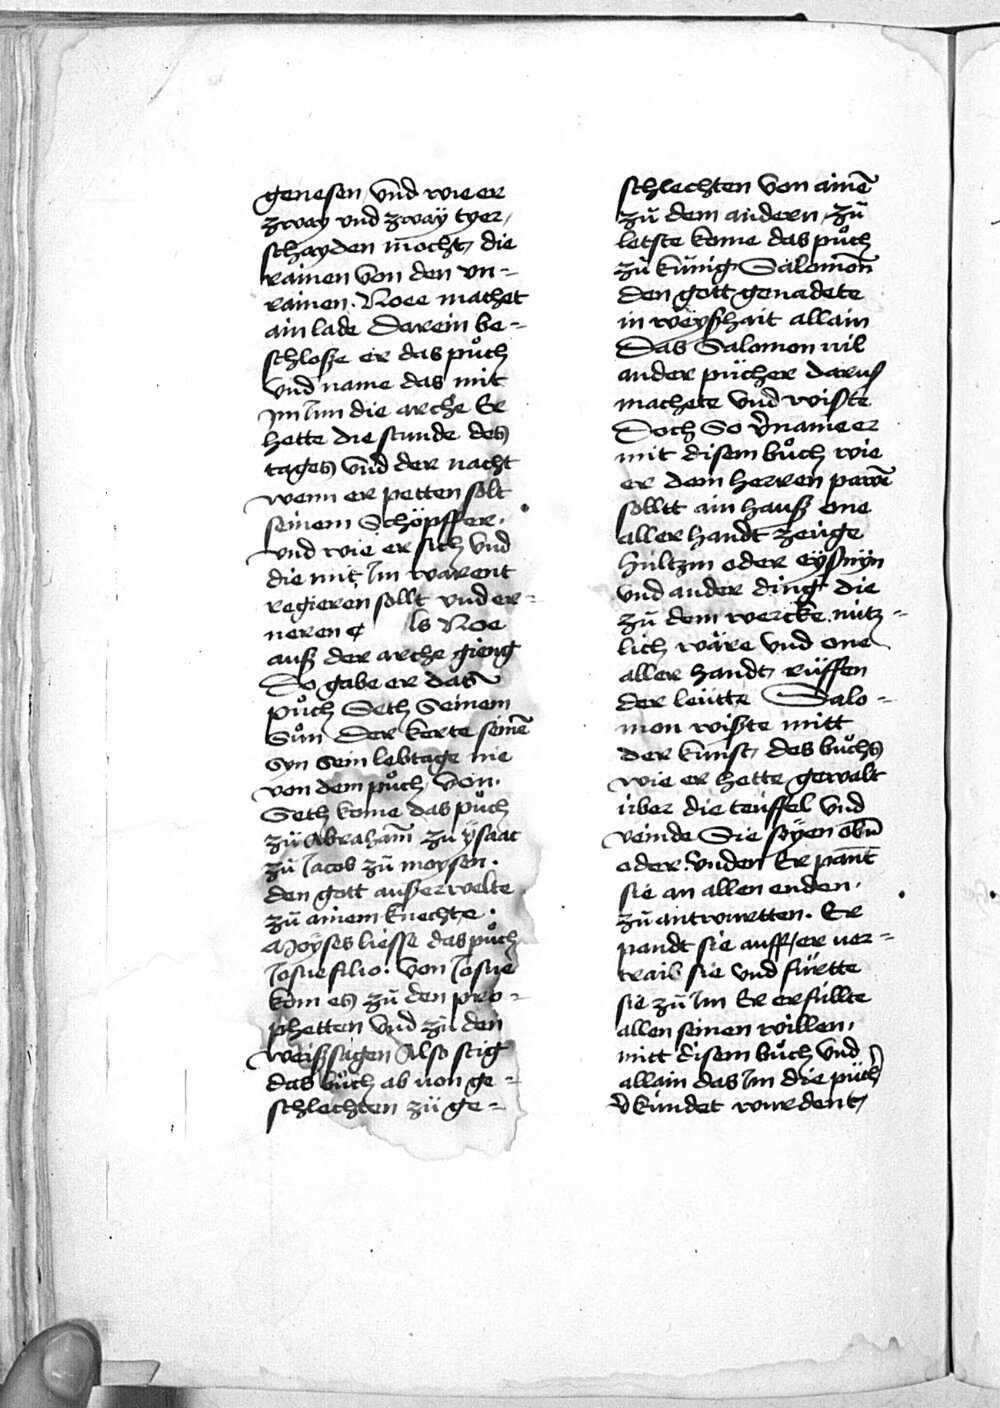 genesen vnd wie er
zway vnd zwaÿ tyer
schayden mocht die
rainen von den vn=
rainen. Noee machet
ain lade Darein be=
schlosze er das pu̇ch
vnd name das mit
jm Jm die arche Er
hette die stunde des
tages vnd der nacht
wenn er petten solt
seinem Schöpffer.
vnd wie er sich vnd
die mit Jm warent
regieren sollt vnd er=
neren ¢ ls Noe
ausz der arche gieng
Do gabe er das
pu̇ch Seth Seinem
Su̇n Der kerte seinē
Syn sein lebtage nie
von dem pu̇ch Von
Seth kome das pu̇ch
zü Abraham̄ zü ÿsaac
zü Jacob zü moysen.
den gott auszerwelte
zü ainem knechte.
Moÿses liesse das pu̇ch
Josue filio. Von Josue
kom es zü den pro=
phetten Vnd zü den
weiszsagen Also stig
das bu̇ch ab von ge=
schlechten zü ge=
schlechten Von ainē
zü dem andern zü
letste kome das pu̇ch
zü künig Salomon̄
den gott genadete
in weÿszhait allain
Das Salomon vil
ander pücher darusz
machete vnd wiszte
Doch So v̄name er
mit disem bu̇ch wie
er dem Herren pawē
solltt ain hausz one
aller handt zeüge
hültzin oder eÿsnÿn
vnd ander ding die
zü dem wercke nütz=
lich wäre vnd one
aller handt rüffen
der leütte Salo=
mon wiszte mitt
der kunst des bu̇chs
wie er hette gewalt
über die teüffel vnd
veinde Sie sÿen obn̄
oder vnden Er pant̄
sie an allen enden.
zü antwurtten. Er
pandt sie auff er ver=
traib sie vnd fürtte
sie zü Jm Er erfüllte
allen seinen willen.
mitt disem bu̇ch vnd
allain das Jm die püch
v̄kündet wurdent